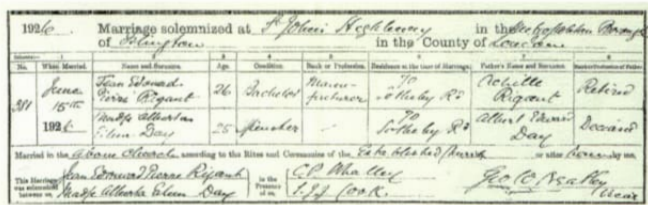 1926 Marriage solemnized at St John's Highbury in the Metropolitan Borough
of Islington in the County of London
No. When Married. Name and Surname. Age. Condition. Rank or Profession. Residence at the time of Marriage. Father's Name and Surname. Rank or Profession of Father.
June 15th 1926 Jean Edouard Pierre Rigant 26 Bachelor Manufacturer 70 Sotheby Rd Achille Rigant Retired
Madge Alberta Eileen Day 25 Spinster 70 Sotheby Rd Albert Edward Day Deceased
Married in the above church according to the Rites and Ceremonies of the Established Church or after banns by me,
This Marriage was solemnized between us, Jean Edouard Pierre Rigant in the Presence of us, C.P. Whalley Geo W Neatby
Madge Alberta Eileen Day Cook Vicar